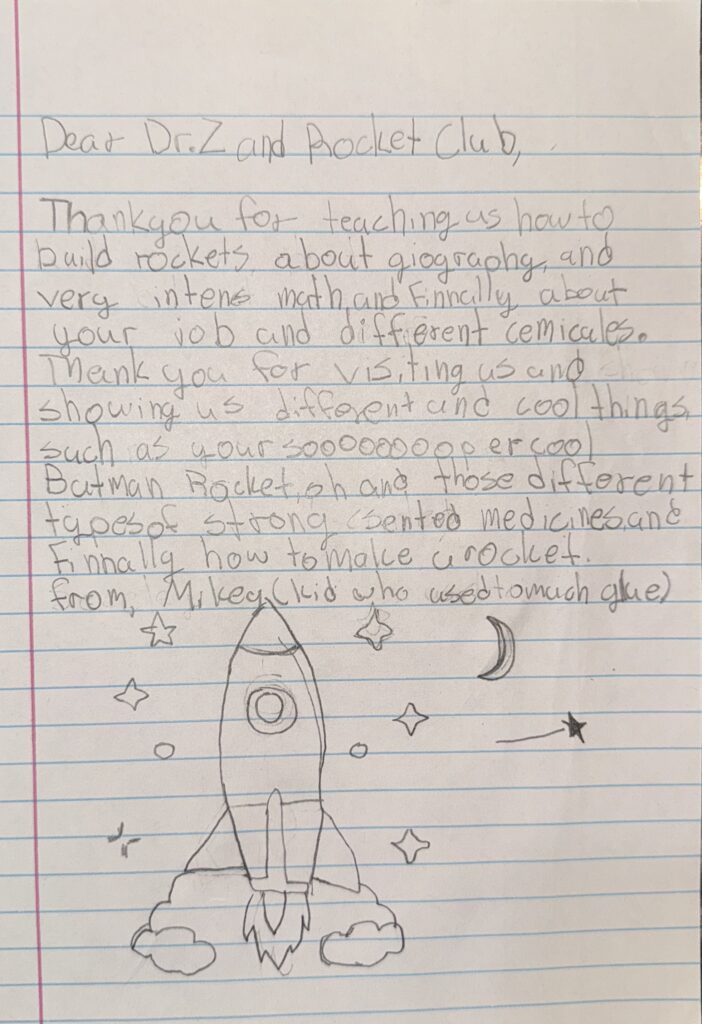 Dear Dr.Z and Rocket Club,
Thankyou for teaching us how to
build rockets, about giography, and
very intens math, and Finnally about
your job and different cemicales.
Thank you for visiting us and
showing us different and cool things,
such as your sooooooooo er cool
Batman Rocket, oh and those different
types of strong sented medicines, and
Finnally how to make a rocket.
from, Mikey (kid who used to much glue)